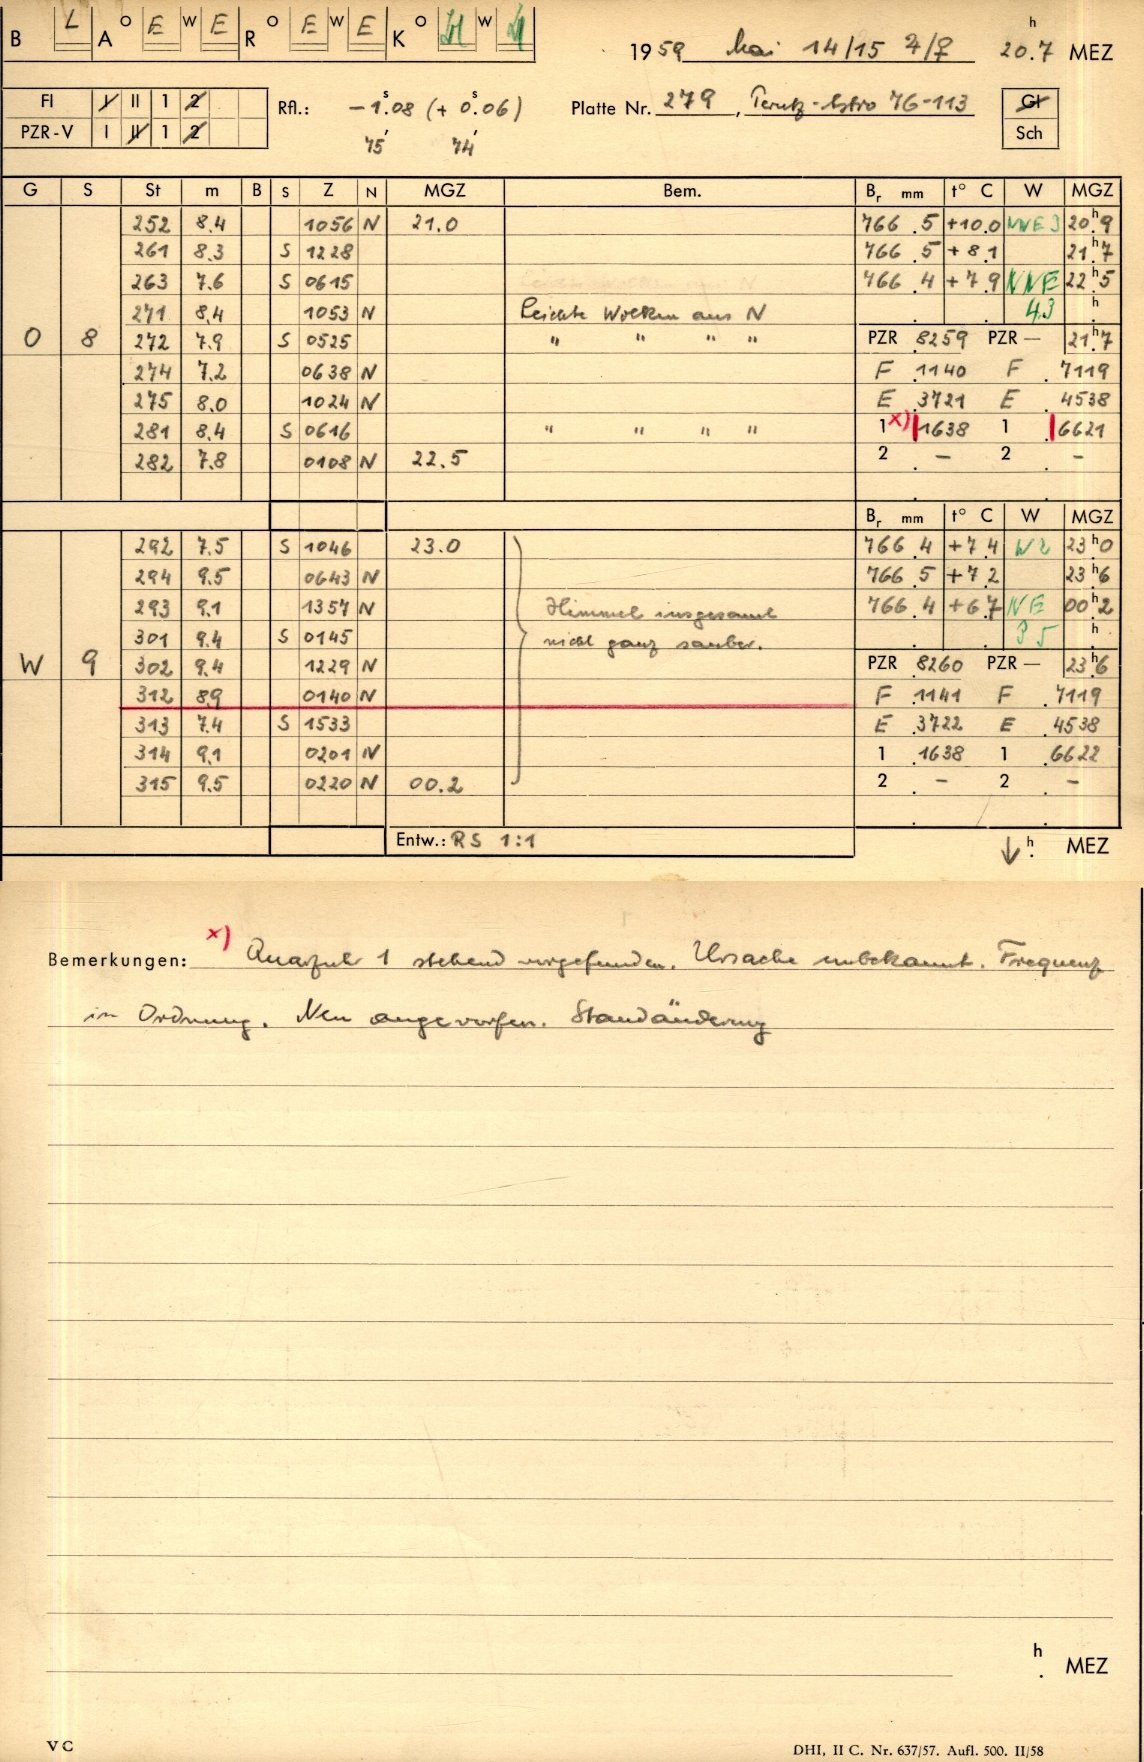 B L A O E W E R O E W E K O W
1959 Mai 14/15 ♃/♀ 20.7 h MEZ
FI I II 1 2 Rfl.: – 1.08 s (+ 0.06 s) Platte Nr. 279, Perutz-Astro 76-113 Gl
PZR-V I II 1 2 75' 74' Sch
G S St m B S Z N MGZ Bem. Br mm t° C W MGZ
252 8.4 1056 N 21.0 766.5 +10.0 NNE 3 20.9 h
261 8.3 S 1228 766.5 +8.1 21.7 h
263 7.6 S 0615 766.4 +7.9 NNE 22.5 h
271 8.4 1053 N Leichte Wolken aus N 4.3 h
O 8 272 7.9 S 0525 " " " " PZR 8259 PZR — 21.7 h
274 7.2 0638 N F 1140 F 7119
275 8.0 1024 N E 3721 E 4538
281 8.4 S 0616 " " " " 1 x) 1638 1 6621
282 7.8 0108 N 22.5 2 – 2 –
Br mm t° C W MGZ
292 7.5 S 1046 23.0 766.4 +7.4 N 2 23.0 h
294 9.5 0643 N 766.5 +7.2 23.6 h
293 9.1 1357 N Himmel insgesamt 766.4 +6.7 NE 00.2 h
301 9.4 S 0145 nicht ganz sauber. 3 5 h
W 9 302 9.4 1229 N PZR 8260 PZR — 23.6 h
312 8.9 0140 N F 1141 F 7119
313 7.4 S 1533 E 3722 E 4538
314 9.1 0201 N 1 1638 1 6622
315 9.5 0220 N 00.2 2 – 2 –
Entw.: RS 1:1 ↓ h MEZ
Bemerkungen: x) Quarzuhr 1 stehend vorgefunden. Ursache unbekannt. Frequenz
in Ordnung. Neu angeworfen. Standänderung
h MEZ
VC DHI, II C. Nr. 637/57. Aufl. 500. II/58